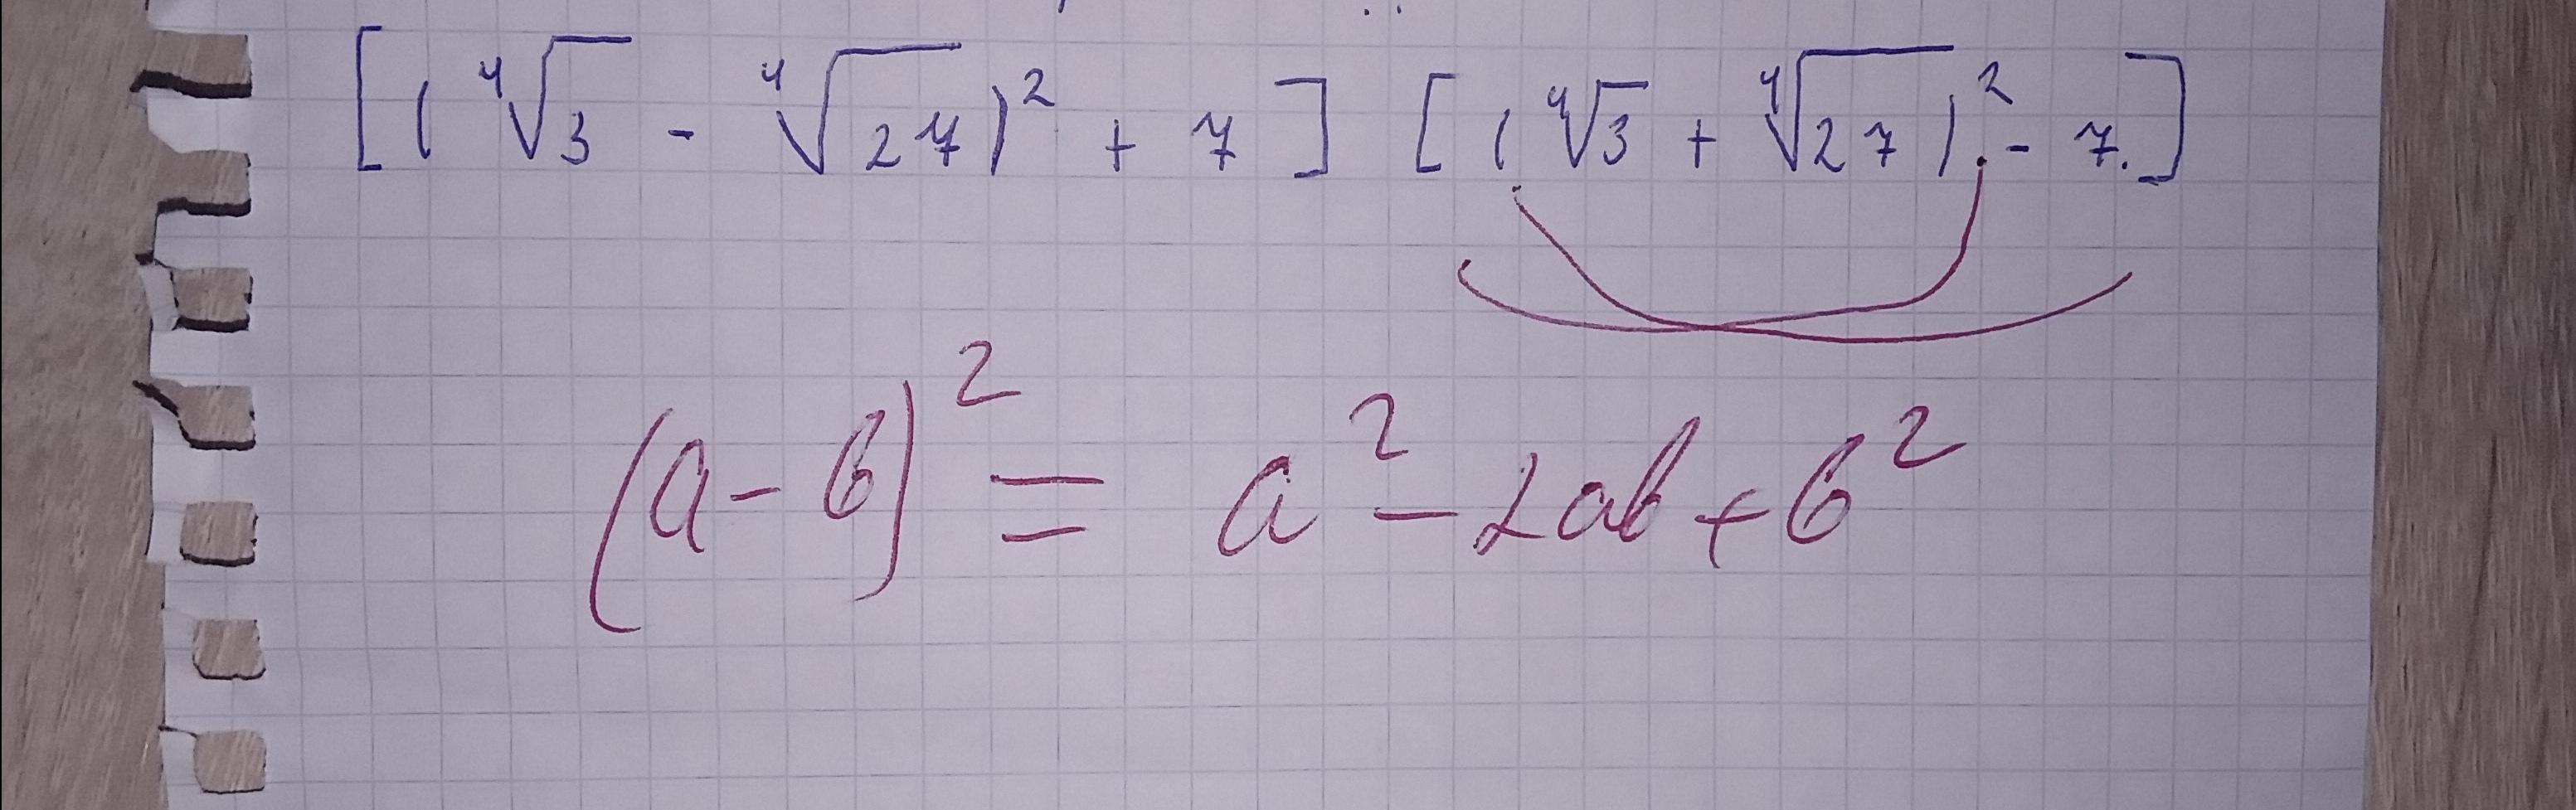 [(⁴√3 - ⁴√27)² + 7] [(⁴√3 + ⁴√27)² - 7.]
(a-b)² = a² - 2ab + b²